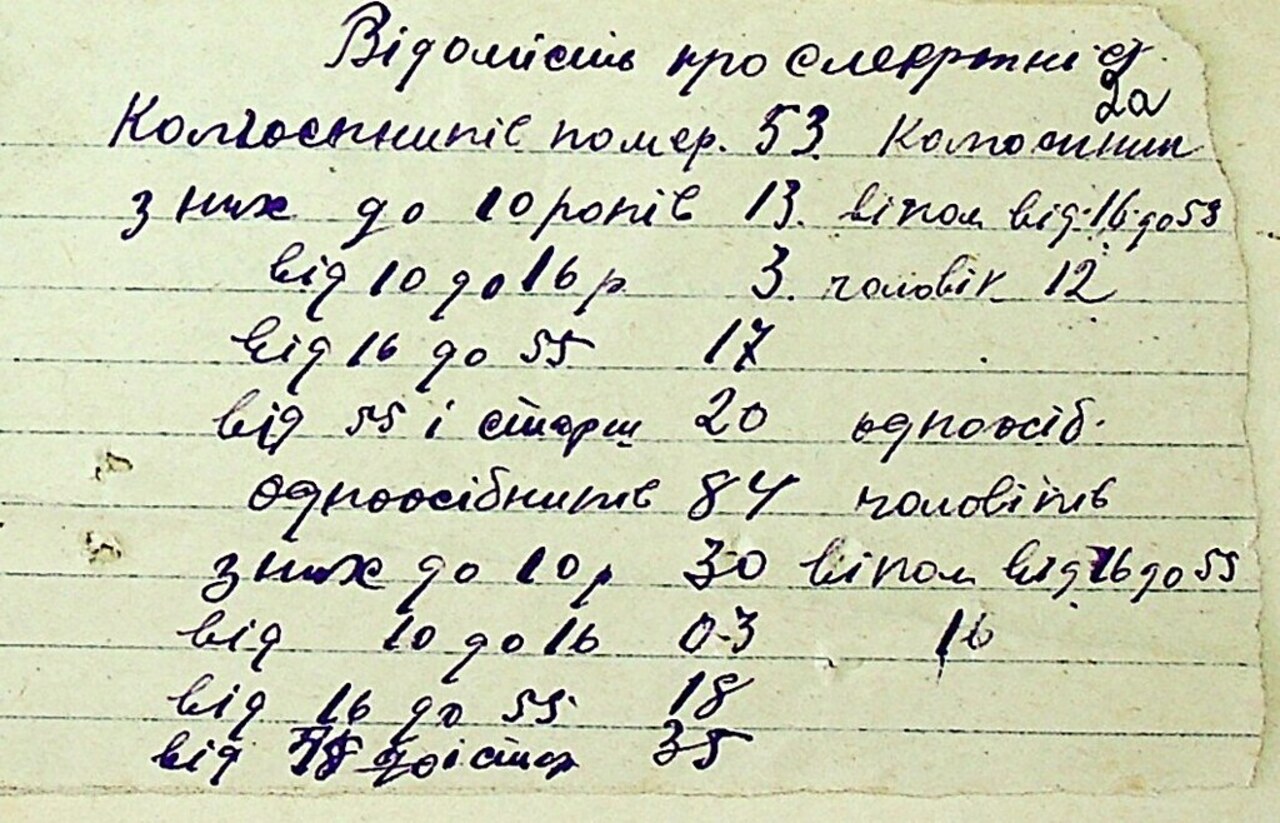 Відомість про смертність
2а
Колгоспників помер. 53. Колгоспник
з них до 10 років 13. віком від 16 до 55
від 10 до 16 р. 3. чоловік 12
від 16 до 55 17
від 55 і старш 20 одноосіб.
одноосібників 84 чоловіків
з них до 10 р 30 віком від 16 до 55
від 10 до 16 03 16
від 16 до 55 18
від до і стар 35